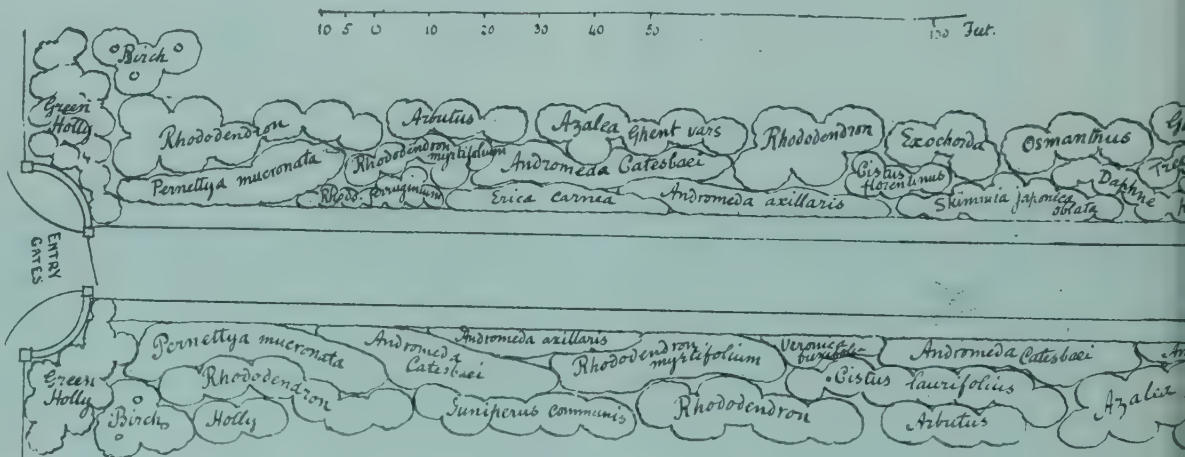 10 5 0 10 20 30 40 50 100 Feet.
Birch
Green
Holly
Rhododendron
Arbutus
Azalea Ghent vars
Rhododendron
Exochorda
Osmanthus
Pernettya mucronata
Rhododendron
myrtifolium
Andromeda Catesbaei
Cistus
florentinus
Daphne
Rhodo. ferruginium
Erica carnea
Andromeda axillaris
Skimmia japonica
oblata
ENTRY
GATES
Pernettya mucronata
Andromeda
Catesbaei
Andromeda axillaris
Rhododendron
myrtifolium
Veronica
buxifolia
Andromeda Catesbaei
Green
Holly
Rhododendron
Cistus laurifolius
Azalea
Birch
Holly
Juniperus communis
Rhododendron
Arbutus